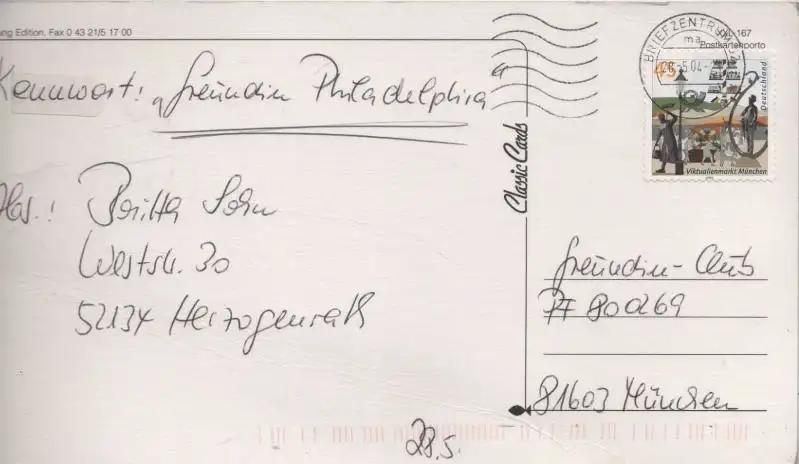 ng Edition, Fax 0 43 21/5 17 00
Kennwort: „freundin Philadelphia"
Abs.: Britta Sohn
Weststr. 30
52134 Herzogenrath
28.5.
Classic Cards
BRIEFZENTRUM
-5.04-
XXL-167
Postkartenporto
45
Deutschland
Viktualienmarkt München
freundin-Club
PF 800269
81603 München